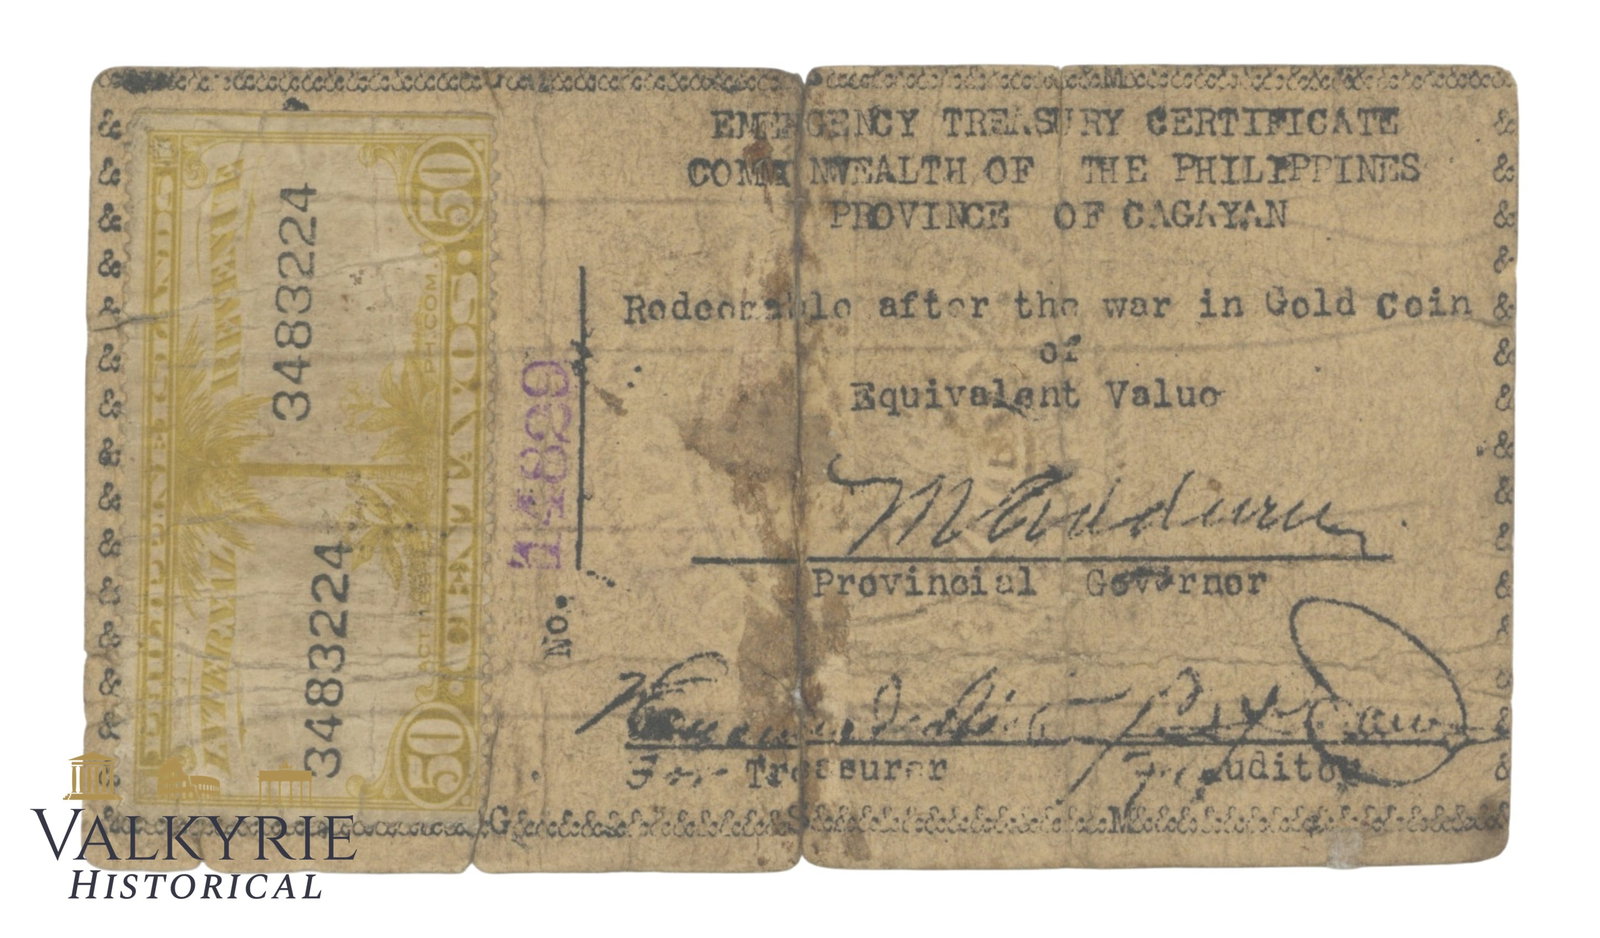 EMERGENCY TREASURY CERTIFICATE
COMMONWEALTH OF THE PHILIPPINES
PROVINCE OF CAGAYAN
Redeemable after the war in Gold Coin
of
Equivalent Value
M Adduru
Provincial Governor
For Treasurer
For Auditor
No. 14829
INTERNAL REVENUE
3483224
3483224
50
50
CENTAVOS
VALKYRIE
HISTORICAL